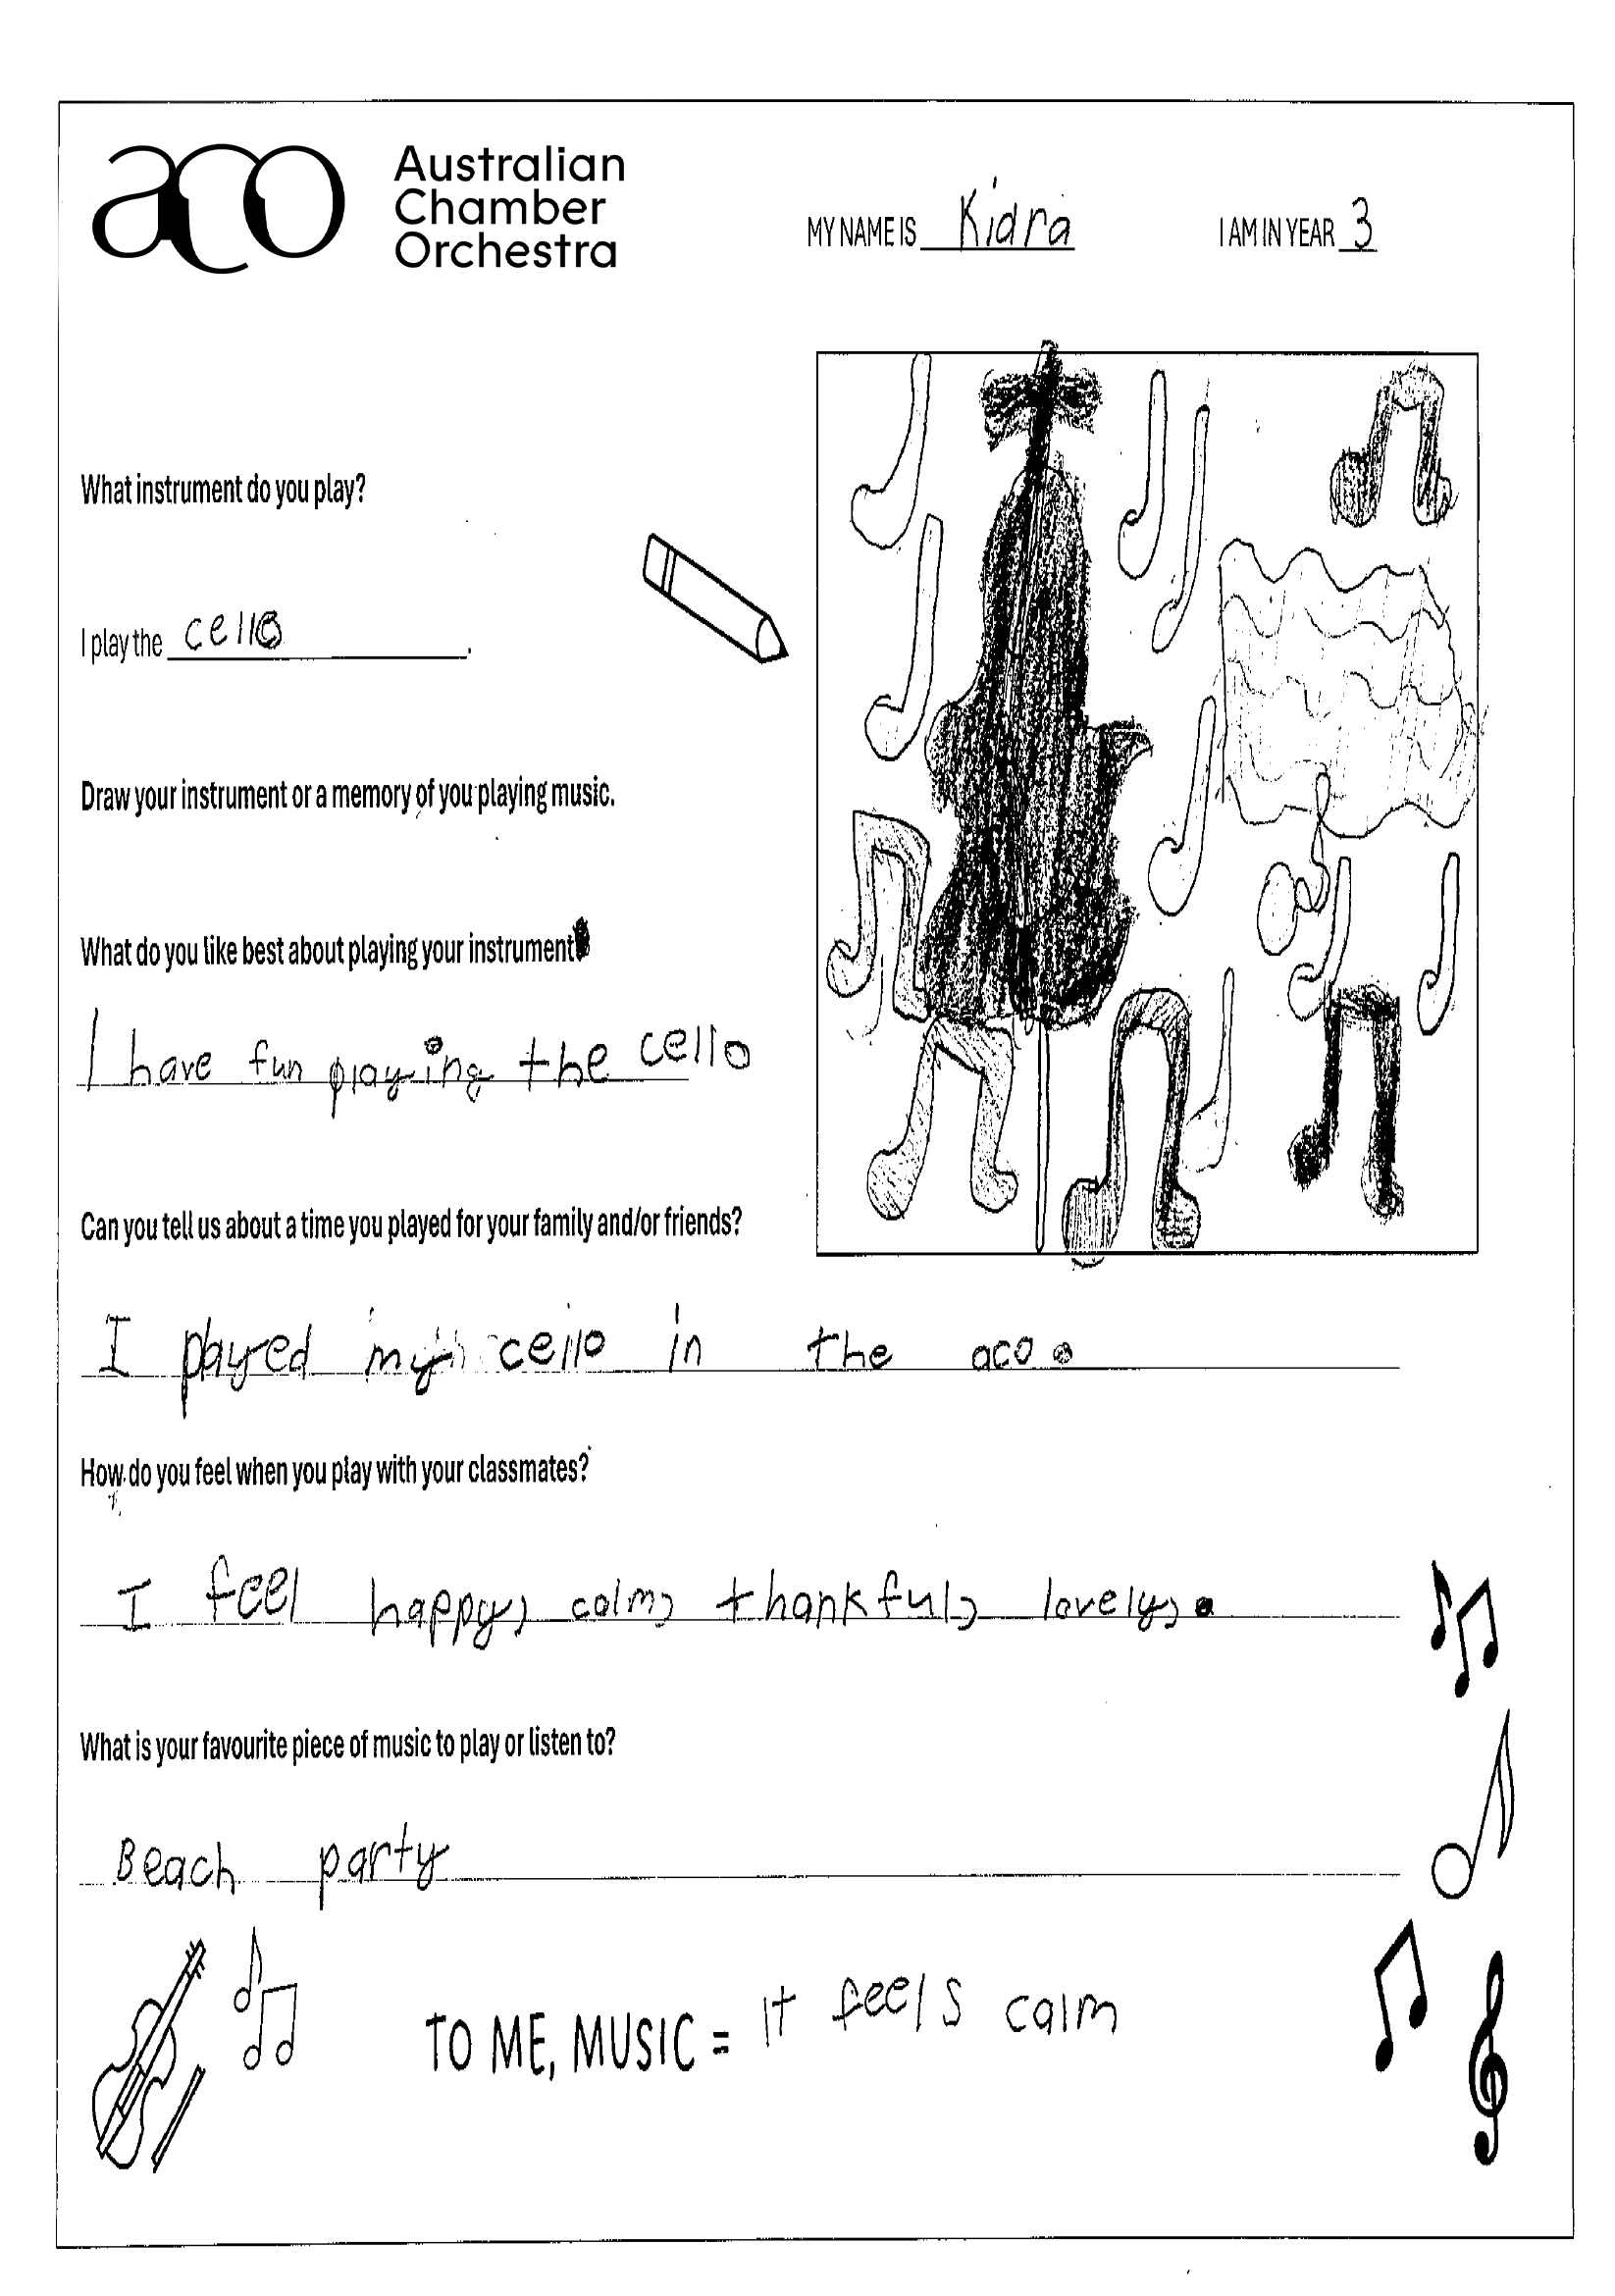 aco
Australian
Chamber
Orchestra
MY NAME IS Kiara
I AM IN YEAR 3
What instrument do you play?
I play the cello.
Draw your instrument or a memory of you playing music.
What do you like best about playing your instrument
I have fun playing the cello
Can you tell us about a time you played for your family and/or friends?
I played my cello in the aco.
How do you feel when you play with your classmates?
I feel happy, calm, thankful, lovely,.
What is your favourite piece of music to play or listen to?
Beach party
TO ME, MUSIC = it feels calm